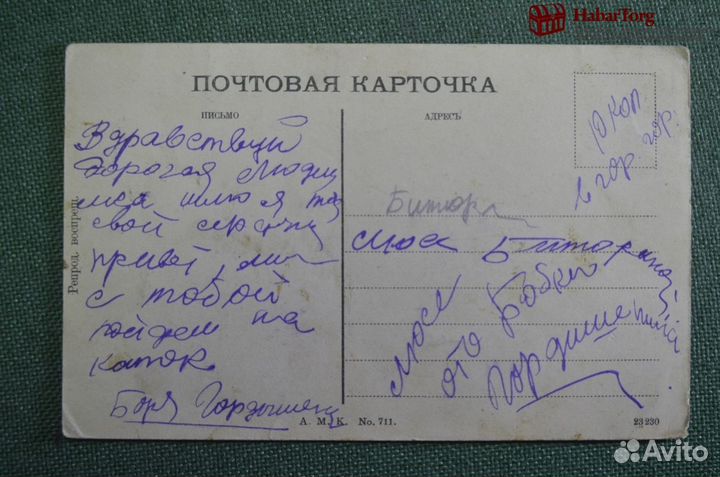 HabarTorg
ПОЧТОВАЯ КАРТОЧКА
ПИСЬМО
АДРЕСЪ
Репрод. воспрещ.
Здравствуй
дорогая Людми
шлю я
свой сердечн
привет,
с тобой
пойдем на
каток
Боря Гордышень
10 коп
в гор. гор.
Битюр
Люсе
от Бобки
А. М. К. No. 711.
23 230
Avito